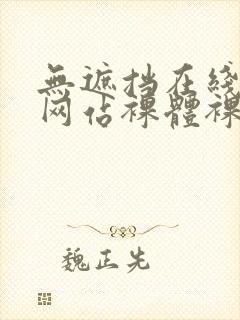 無遮挡在綫
网站裸體裸
魏正先